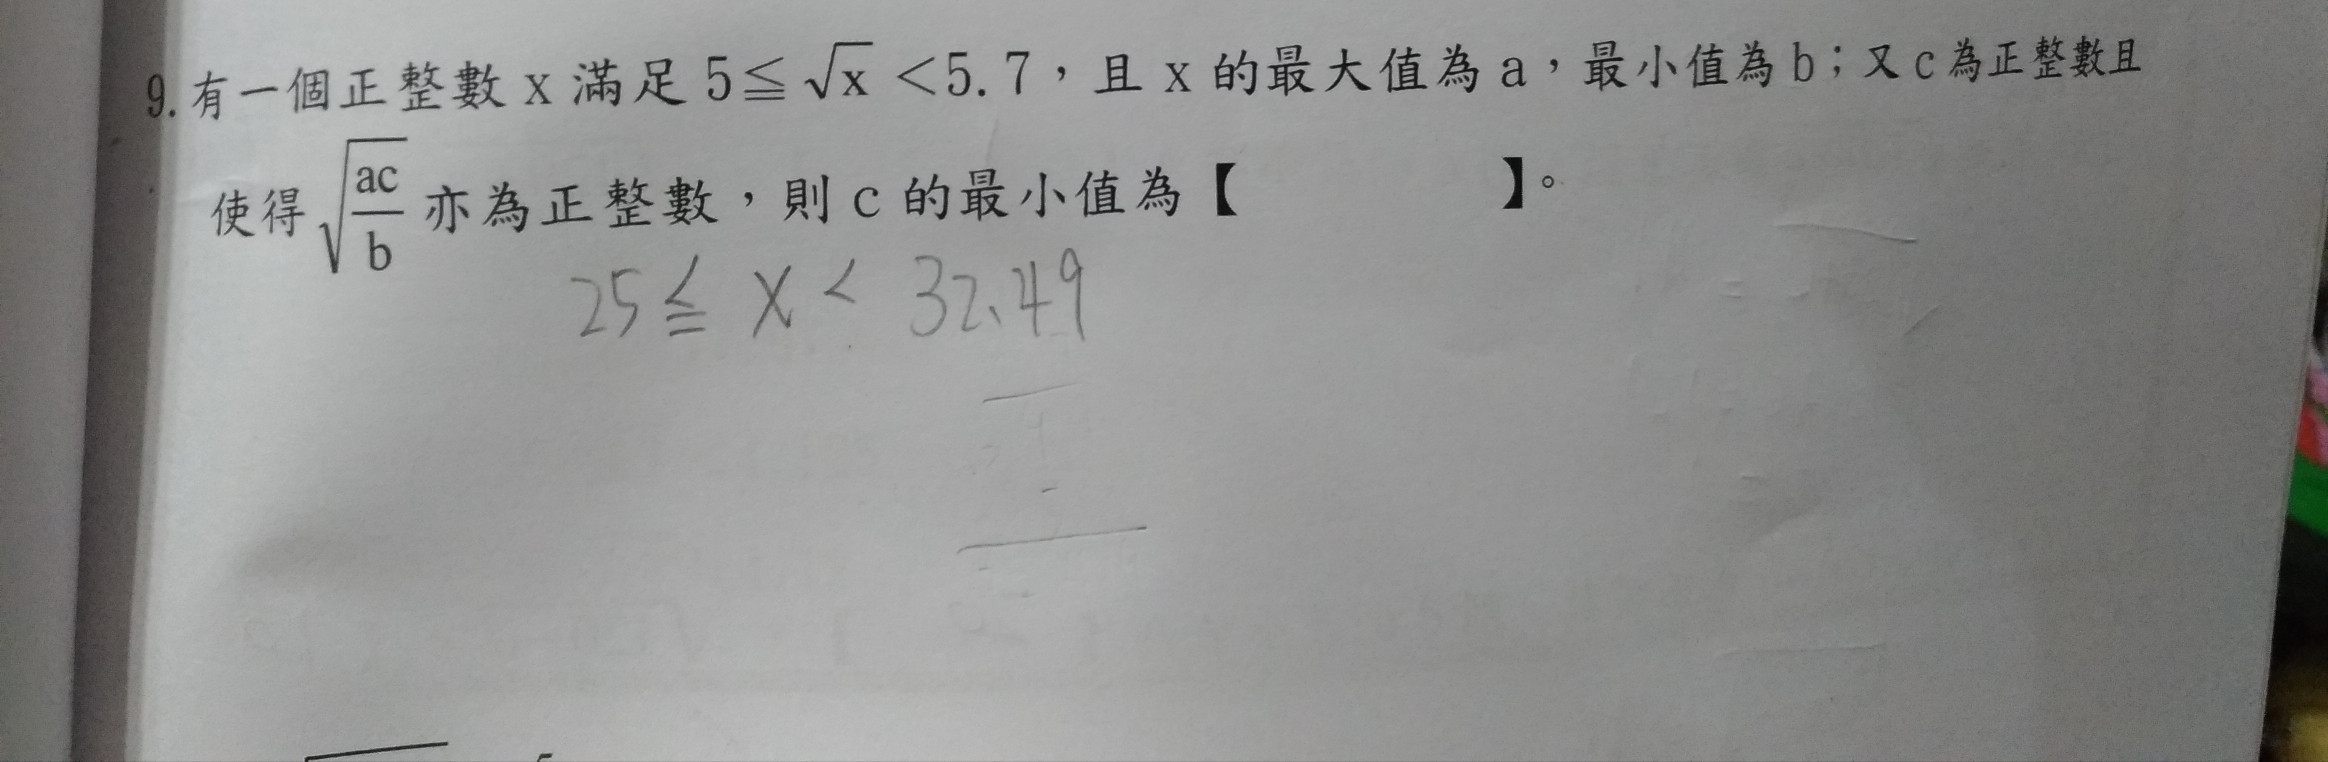 9.有一個正整數 x 滿足 5≦√x <5.7，且 x 的最大值為 a，最小值為 b；又 c 為正整數且
使得 √(ac/b) 亦為正整數，則 c 的最小值為【　　　　】。
25 ≦ x < 32.49